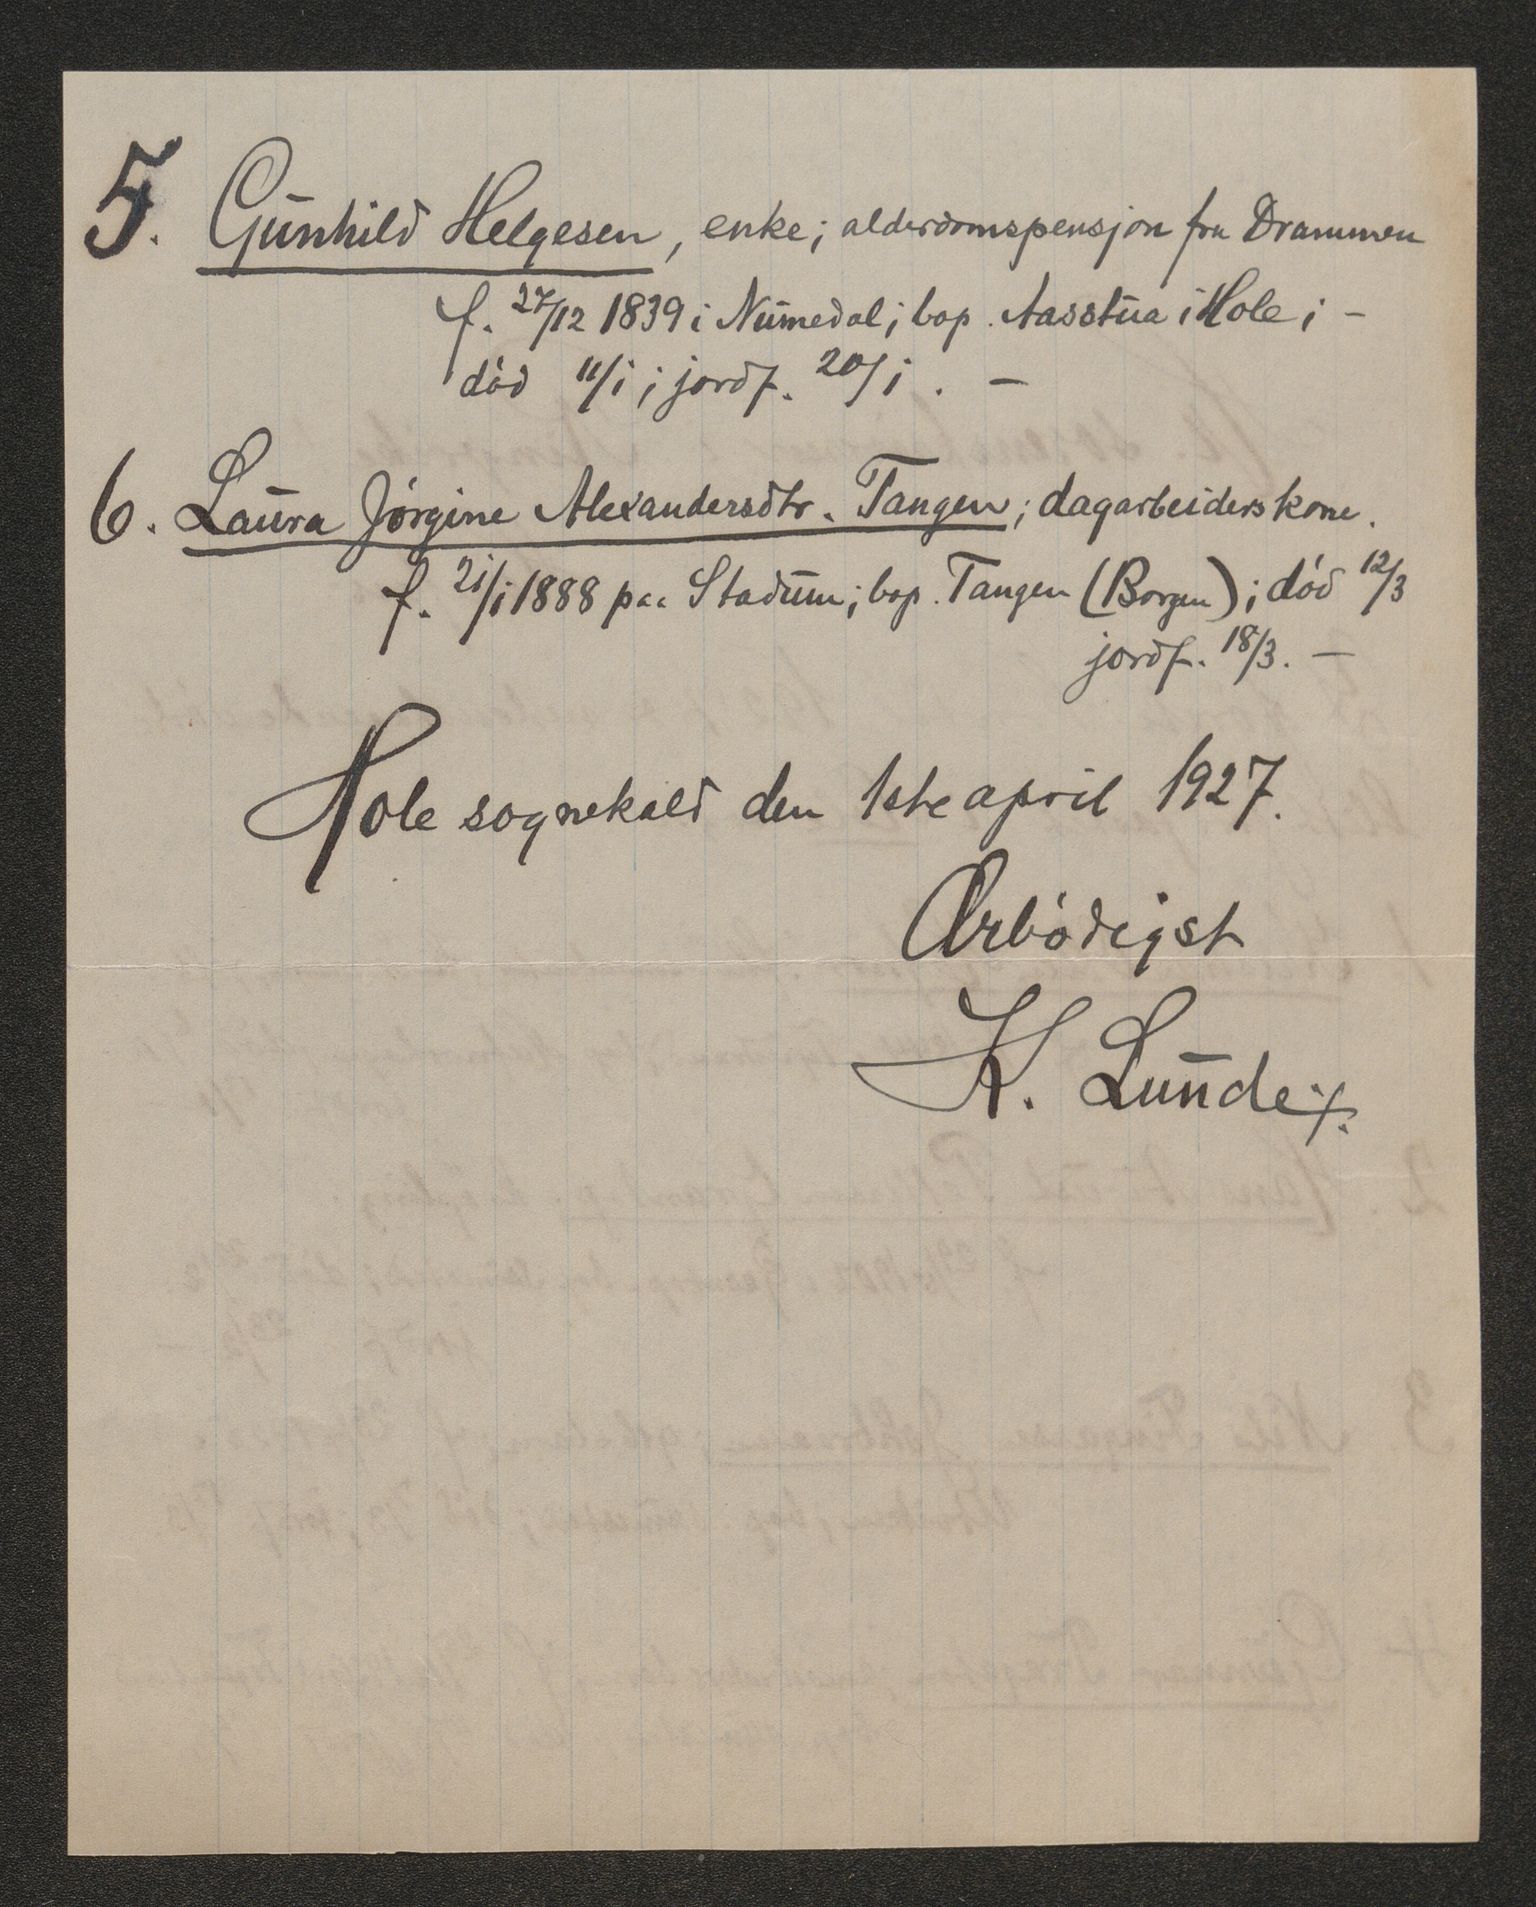 5. Gunhild Helgesen, enke; alderdomspensjon fra Drammen
f. 27/12 1839 i Numedal; bop. Aasstua i Hole; -
död 11/1; jordf. 20/1. -
6. Laura Jörgine Alexandersdtr. Tangen; dagarbeiderskone.
f. 21/1 1888 paa Stadum; bop. Tangen (Borgen); död 12/3
jordf. 18/3. -
Hole sognekald den 1ste april 1927.
Ærbödigst
K. Lunde